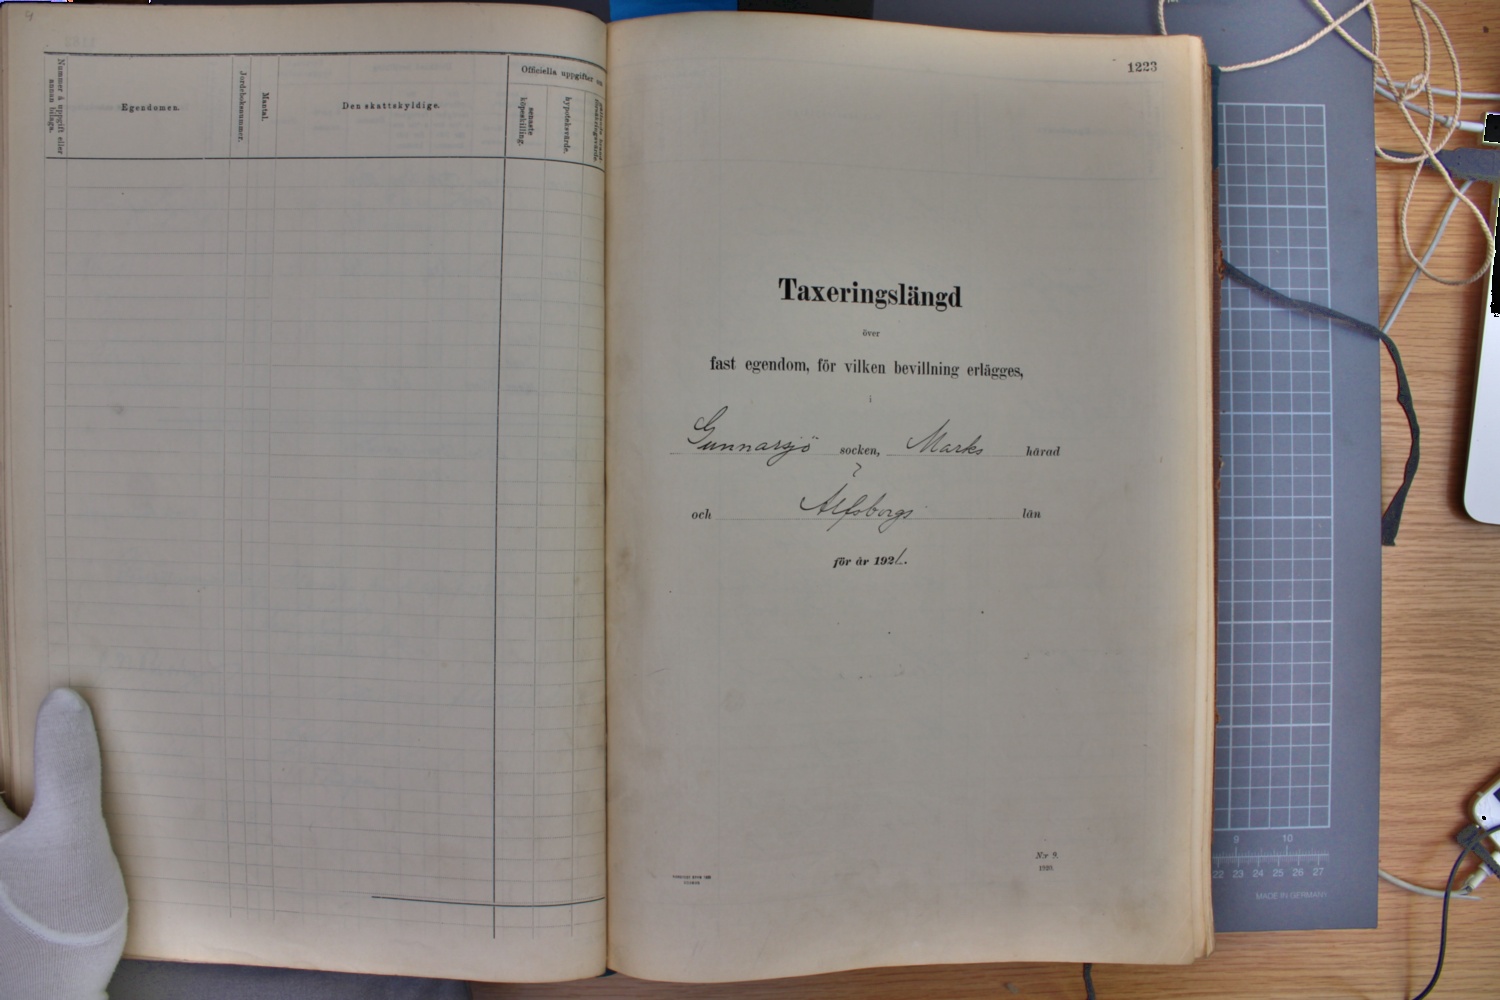 Nummer å uppgift eller annan bilaga.
Egendomen.
Jordeboksnummer.
Mantal.
Den skattskyldige.
Officiella uppgifter
senaste köpeskilling.
hypoteksvärde.
1223
Taxeringslängd
över
fast egendom, för vilken bevillning erlägges,
i
Gunnarsjö socken, Marks härad
och Älfsborgs län
för år 1921.
N:r 9.
1920.
9 10
22 23 24 25 26 27
MADE IN GERMANY